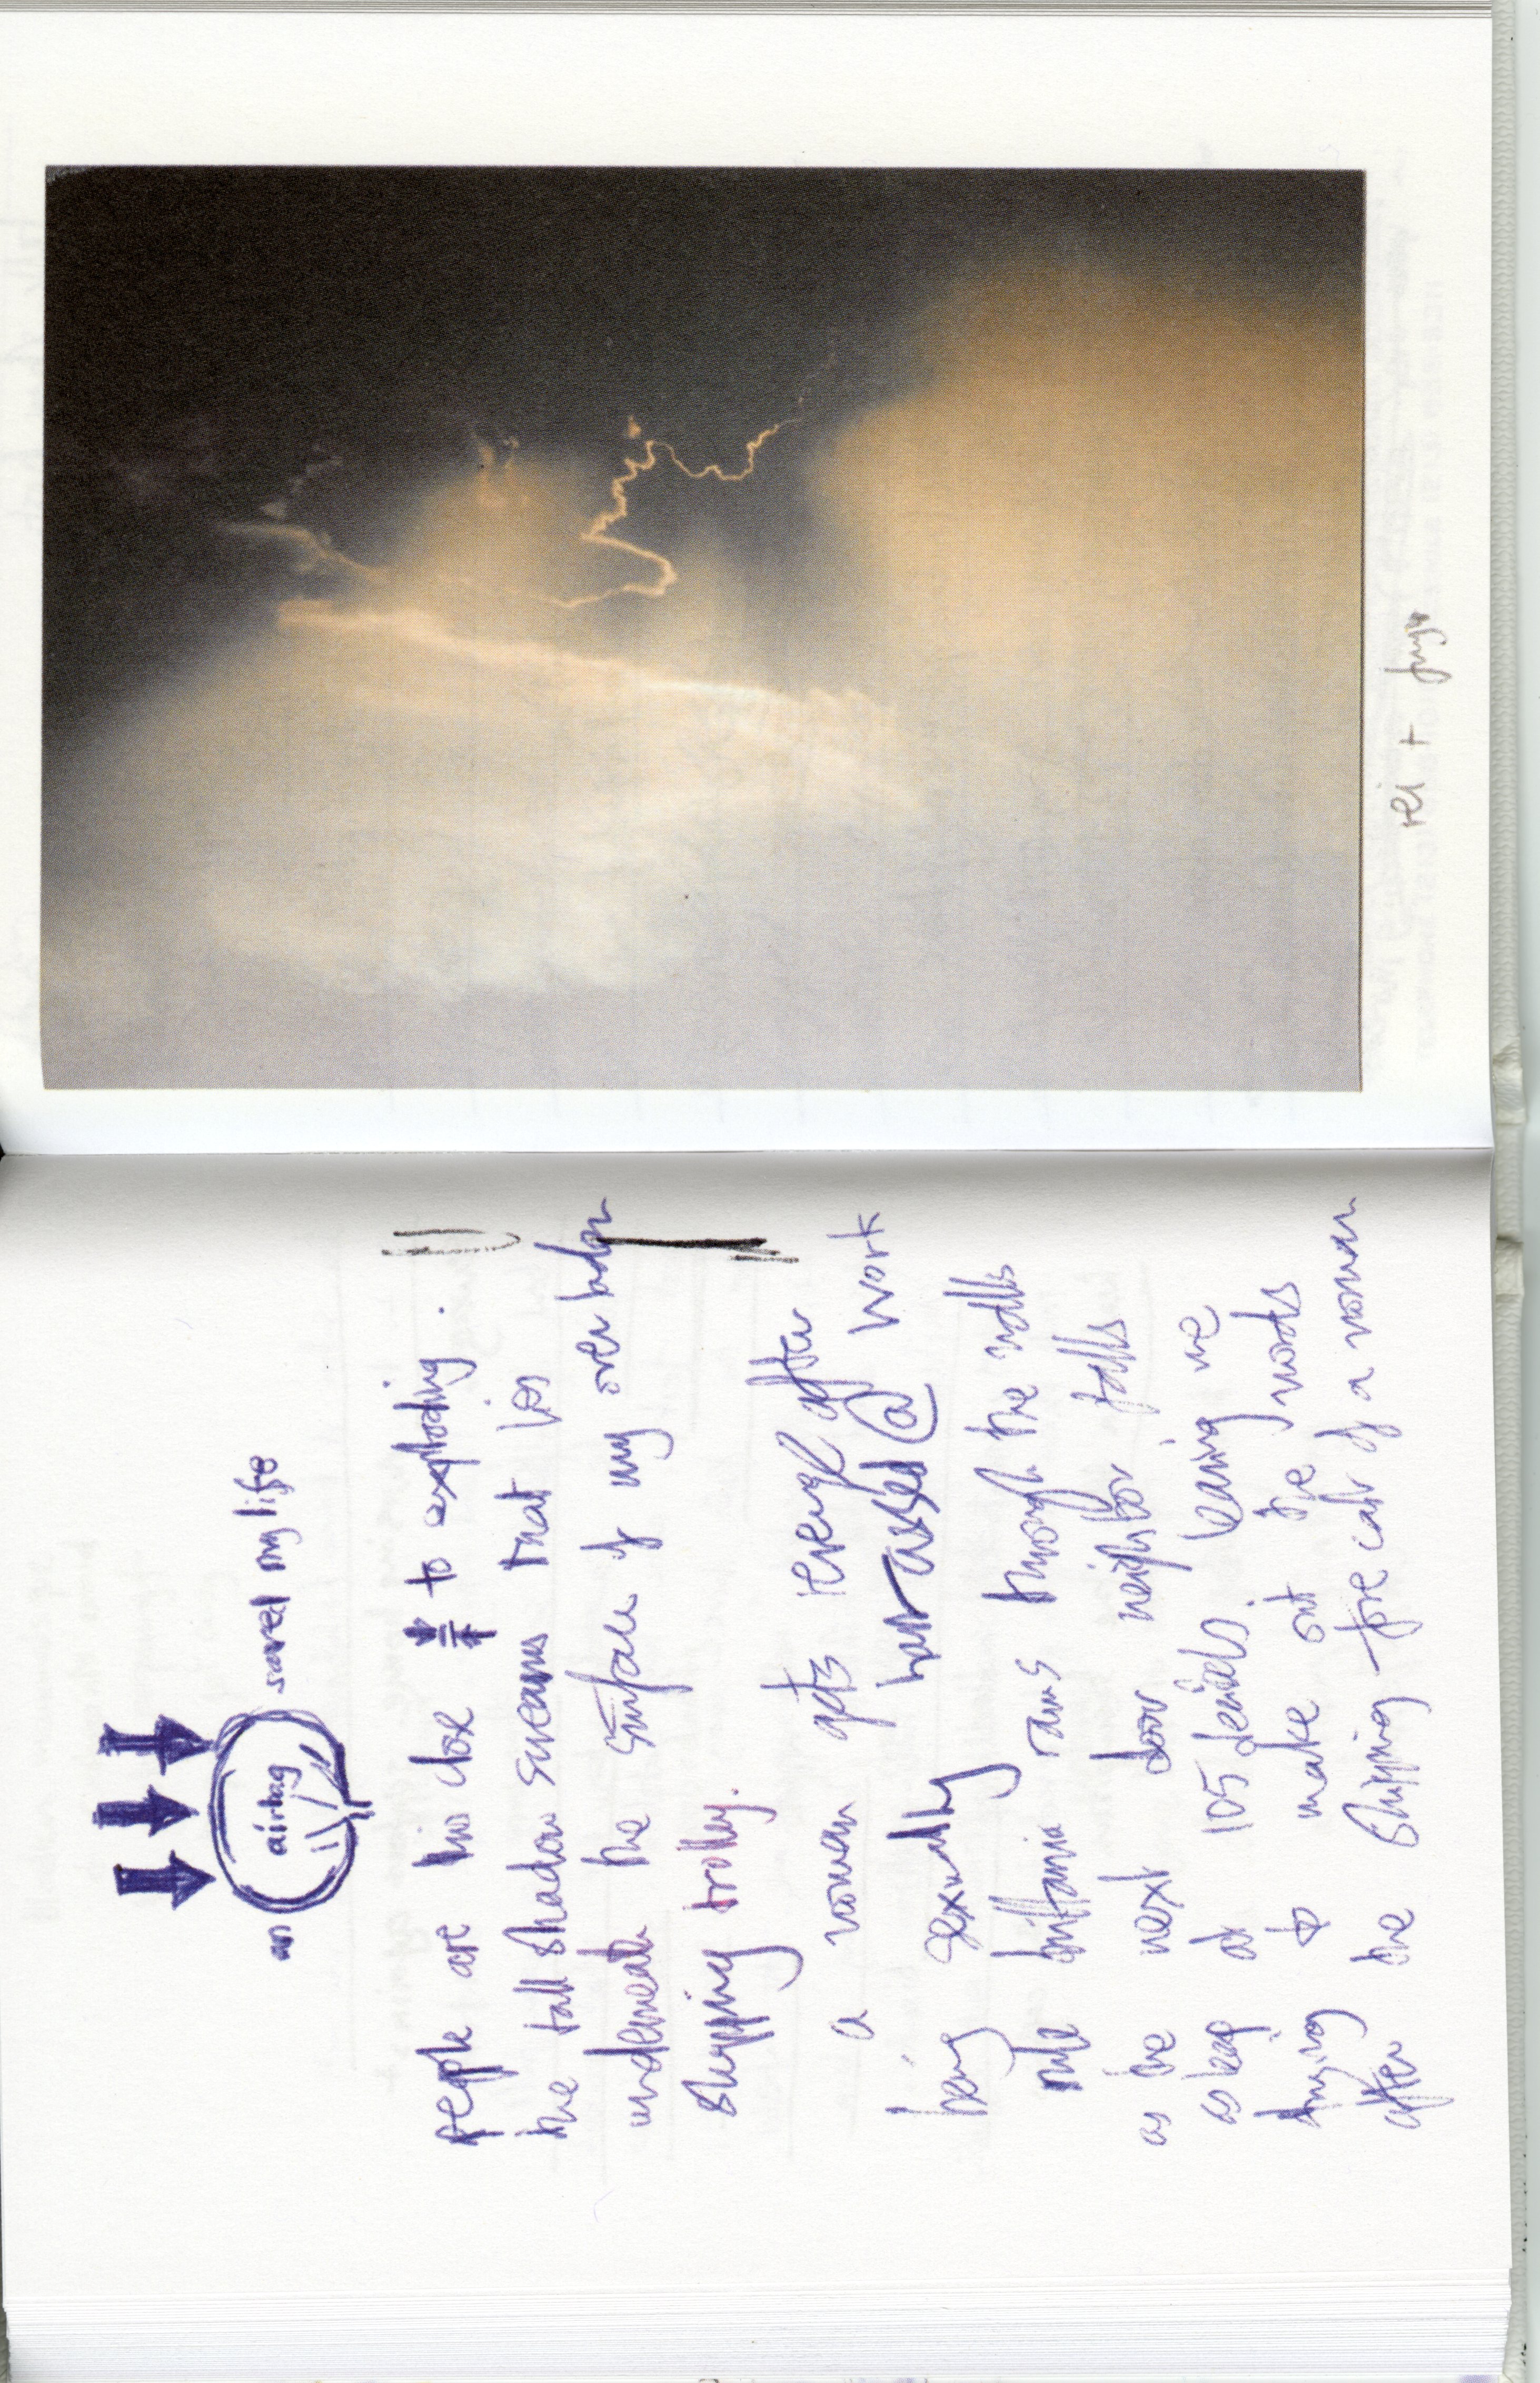 an airbag saved my life
people are too close to exploding.
the tall shadow screams that lies
underneath the surface of my
shopping trolley.
a woman gets revenge after
being sexually harassed @ work
rule brittania rams through the walls
as the next door neighbor falls
asleep at 105 decibels. leaving me
trying to make out the words
after the Shipping forecast of a woman
rei +